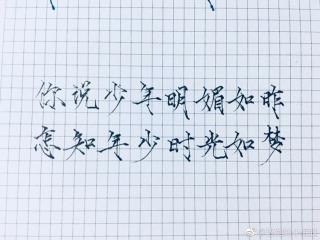 你说少年明媚如昨
怎知年少时光如梦